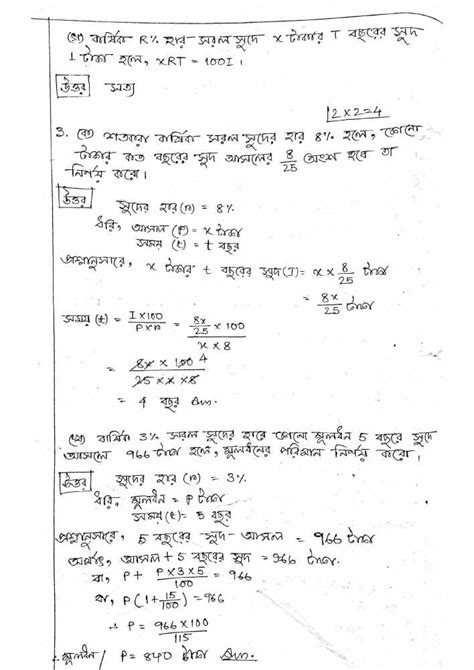 (গ) বার্ষিক R% হার সরল সুদে x টাকার T বছরের সুদ
I টাকা হলে, xRT = 100I ।
উত্তর সত্য
2×2=4
3. (ক) শতকরা বার্ষিক সরল সুদের হার 8% হলে, কোনো
টাকার কত বছরের সুদ আসলের 8/25 অংশ হবে তা
নির্ণয় করো।
উত্তর সুদের হার (r) = 8%
ধরি, আসল (P) = x টাকা
সময় (t) = t বছর
প্রশ্নানুসারে, x টাকার t বছরের সুদ (I) = x × 8/25 টাকা
= 8x/25 টাকা
সময় (t) = I×100/P×r = 8x/25 × 100/x × 8
= 8x × 100 4/25 × x × 8
= 4 বছর Ans.
(খ) বার্ষিক 3% সরল সুদের হারে কোনো মূলধন 5 বছরে সুদে
আসলে 966 টাকা হলে, মূলধনের পরিমান নির্ণয় করো।
উত্তর সুদের হার (r) = 3%
ধরি, মূলধন = P টাকা
সময় (t) = 5 বছর
প্রশ্নানুসারে, 5 বছরের সুদ-আসল = 966 টাকা
অর্থাৎ, আসল + 5 বছরের সুদ = 966 টাকা
বা, P + P×3×5/100 = 966
বা, P(1+15/100) = 966
∴ P = 966×100/115
∴ মূলধন P = 840 টাকা Ans.